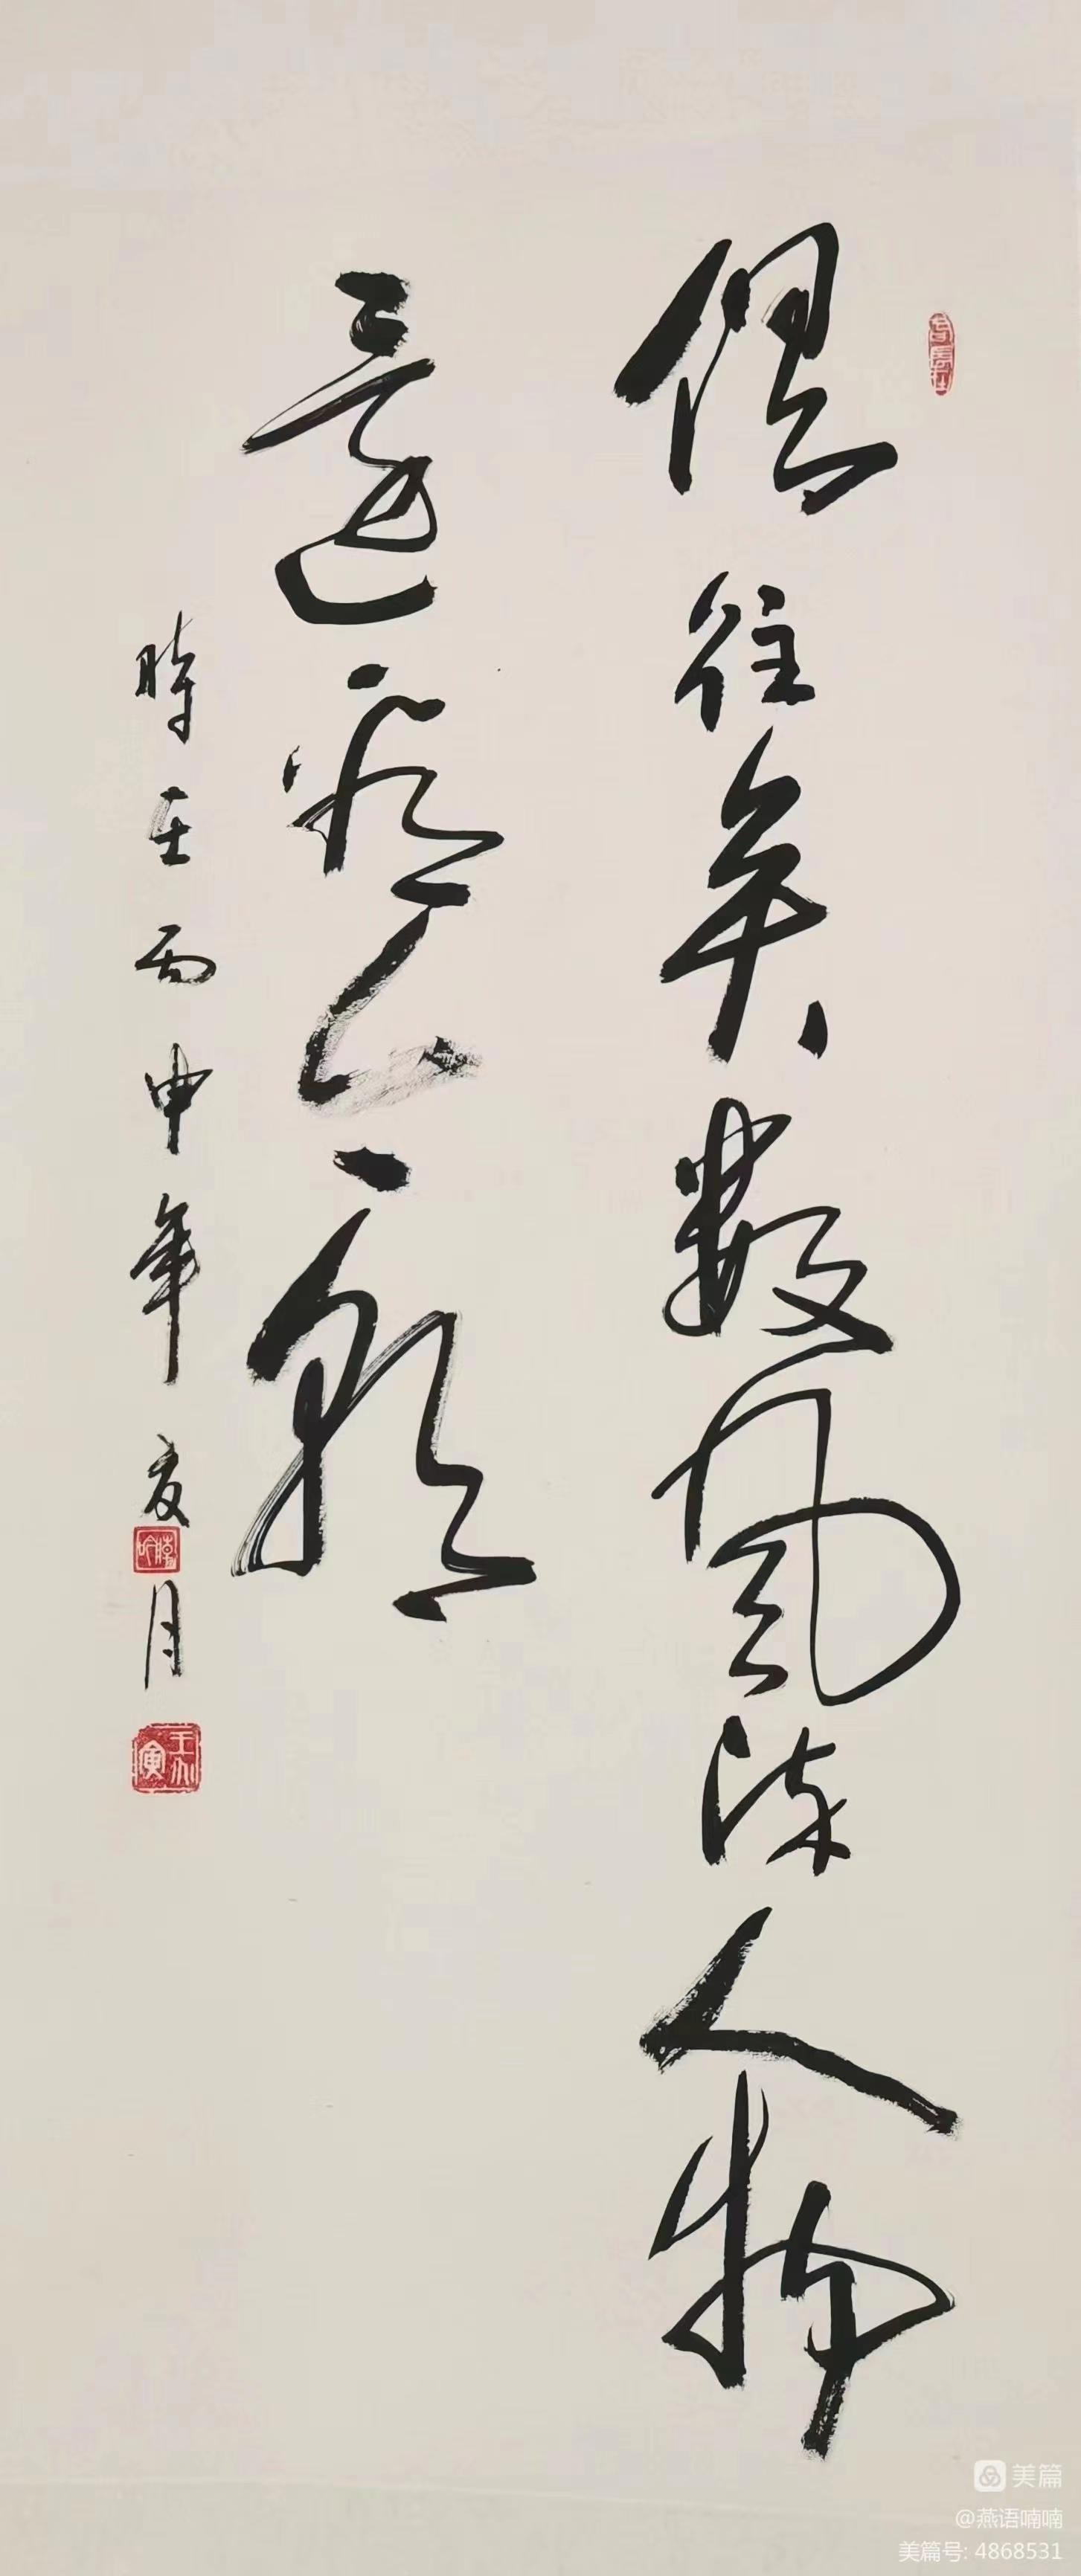 俱往矣数风流人物
还看今朝
时在丙申年夏月
美篇
@燕语喃喃
美篇号: 4868531